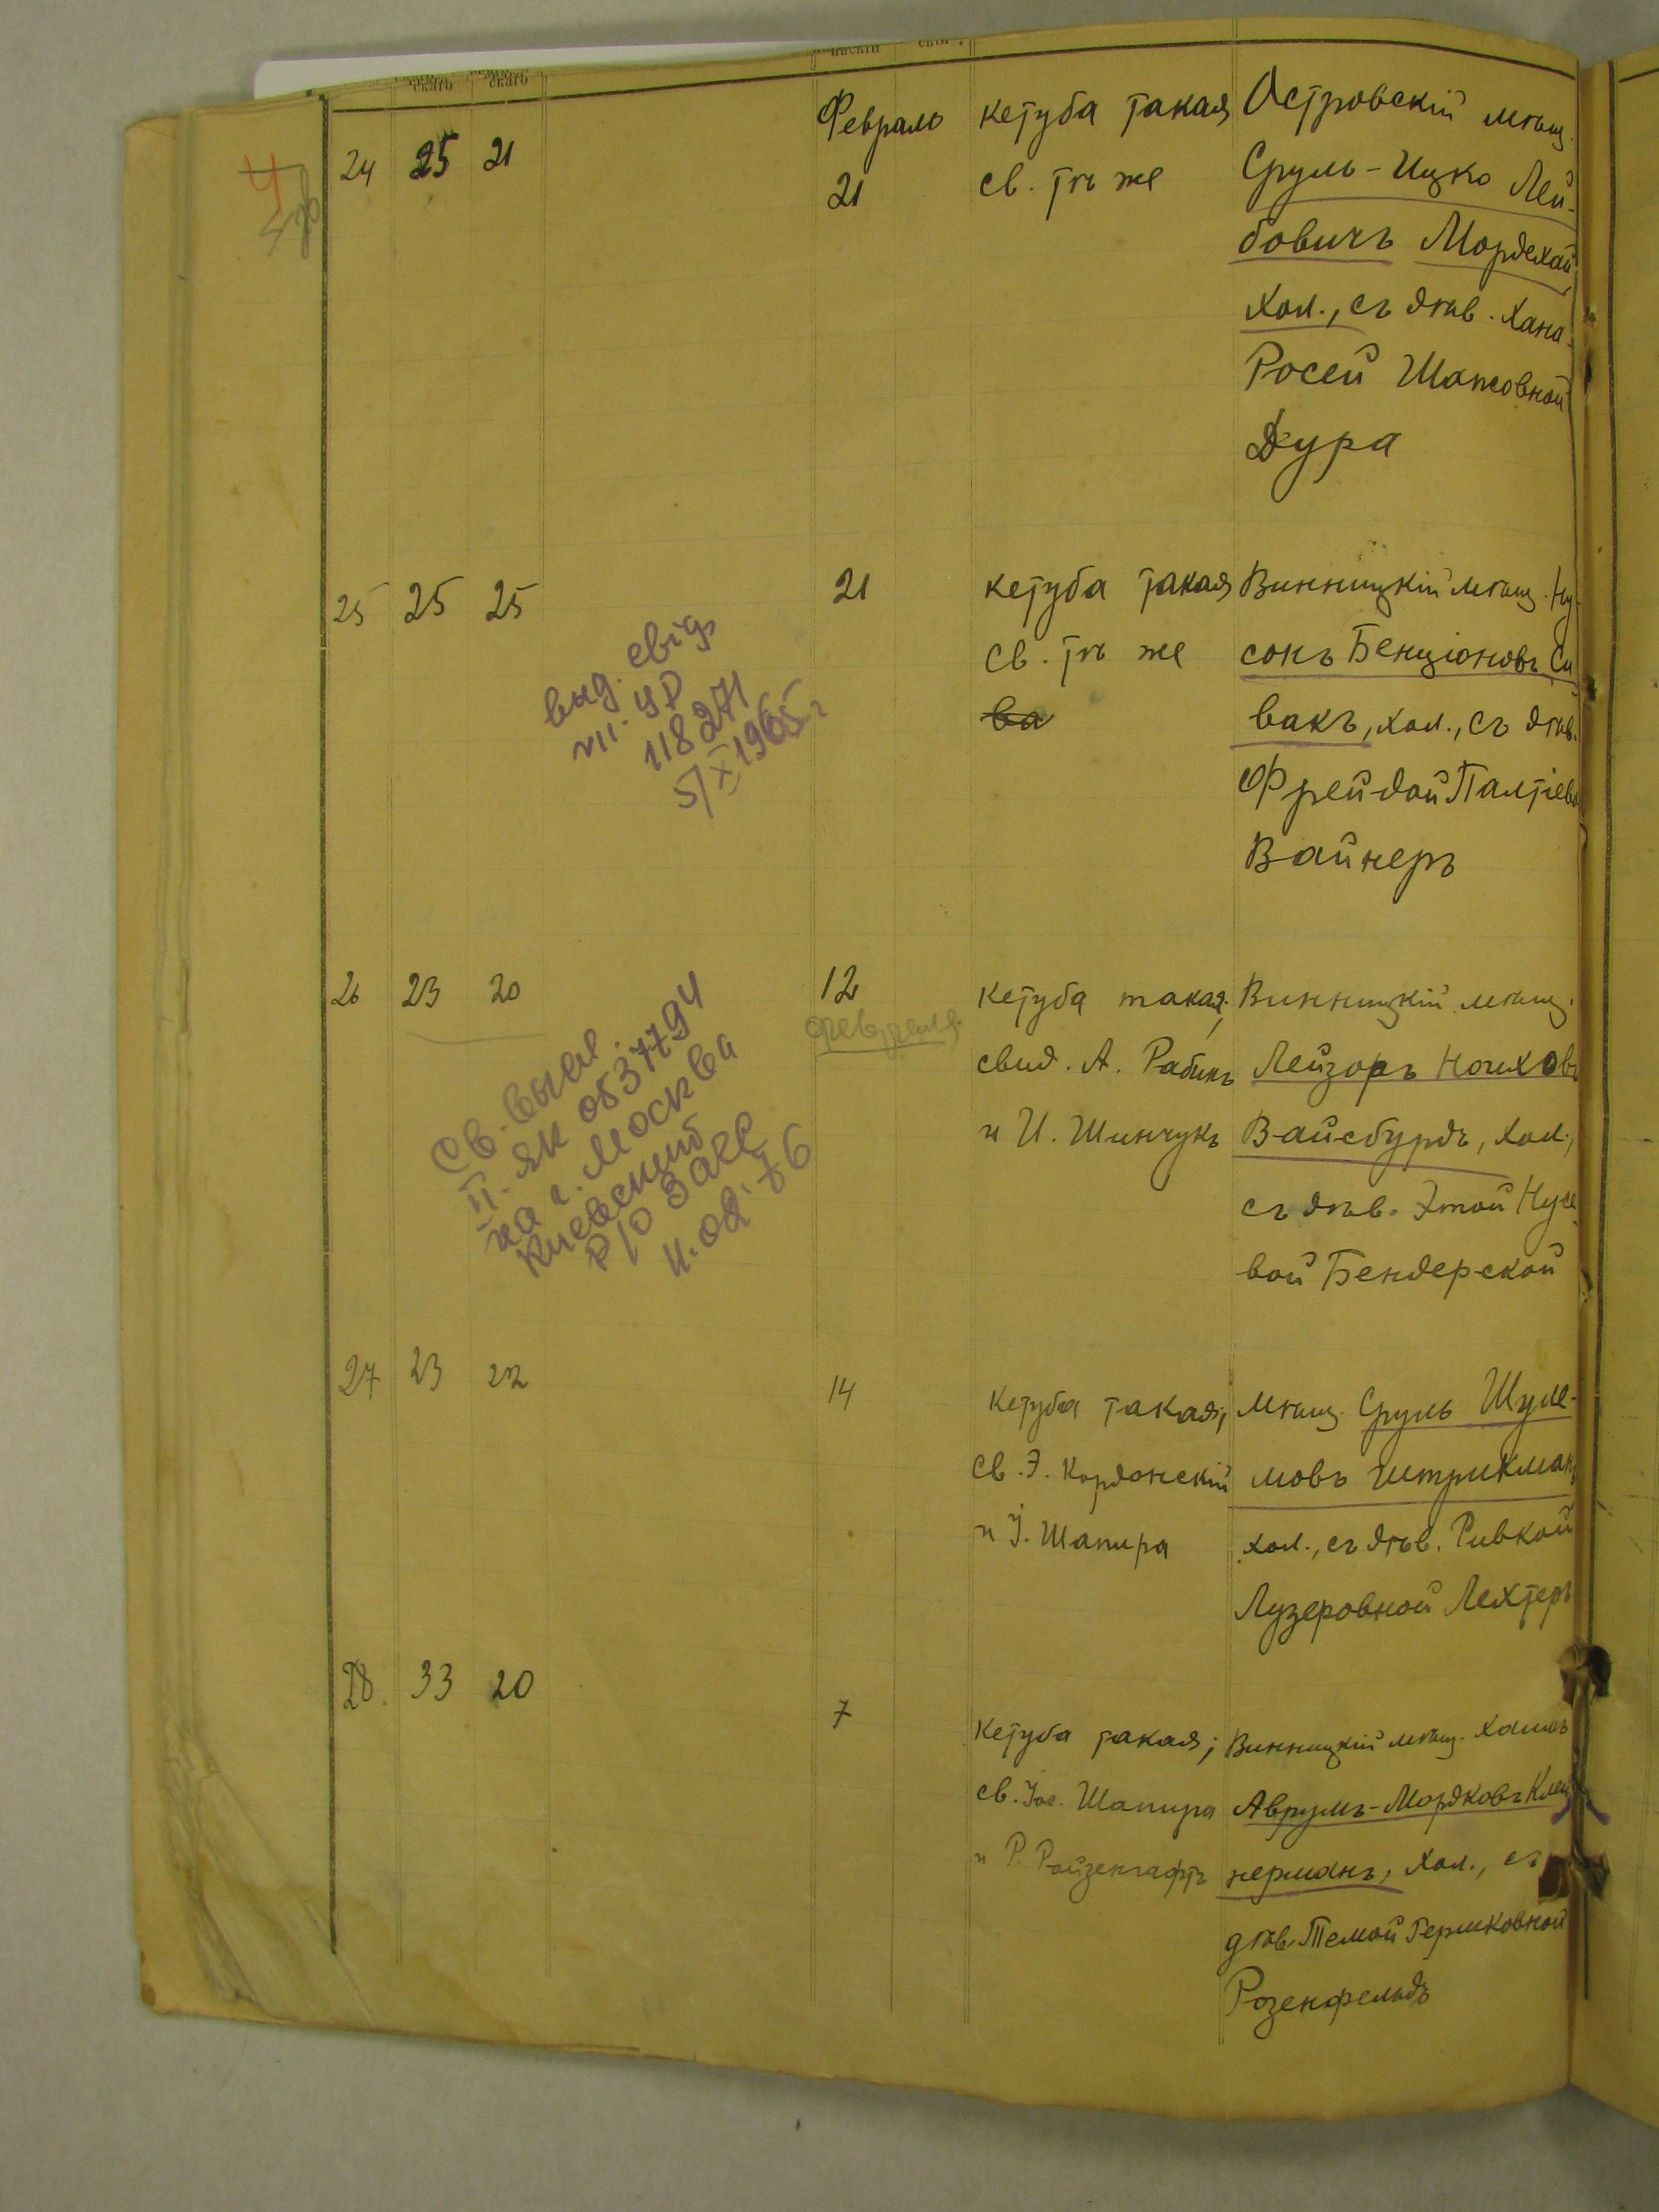 скаго скаго
24 25 21 Февраль кетуба такая Островскій мѣщ.
21 св. тѣ же Сруль-Ицко Лей-
бовичъ Мордехай
хол., съ дѣв. Хана-
Росей
Дура
25 25 25 21 кетуба такая Винницкій мѣщ. Ну-
св. тѣ же сонъ Бенціоновъ Си
ва вакъ, хол., съ дѣв.
Фрейдой Палтіев
Вайнеръ
выд. свід.
118271
5/X 1965 г
26 23 20 12 кетуба такая; Винницкій мѣщ.
февраля свид. А. Рабинъ Лейзоръ Ноиховъ
и И. Шинчукъ Вайсбурдъ, хол.,
съ дѣв. Этой Нусе
вой Бендерской
св. высл.
II-ЯК 0537794
на г. Москва
Киевский
р/о ЗАГС
11.02.76
27 23 22 14 кетуба такая; мѣщ. Сруль Шуле-
св. Э. Кордонскій мовъ Штрикман
и І. Шапира хол., съ дѣв. Ривкой
Лузеровной Лехтеръ
28. 33 20 7 Кетуба такая; Винницкій мѣщ. Хаимъ
св. Іос. Шапира Аврумъ-Мордковъ Клей
и Р. Ройзенгафтъ нерманъ, хол., съ
дѣв. Темой Гершковной
Розенфельдъ